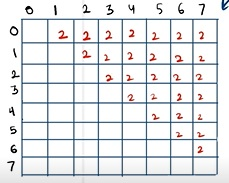 0 1 2 3 4 5 6 7
0 2 2 2 2 2 2 2
1 2 2 2 2 2 2
2 2 2 2 2 2
3 2 2 2 2
4 2 2 2
5 2 2
6 2
7